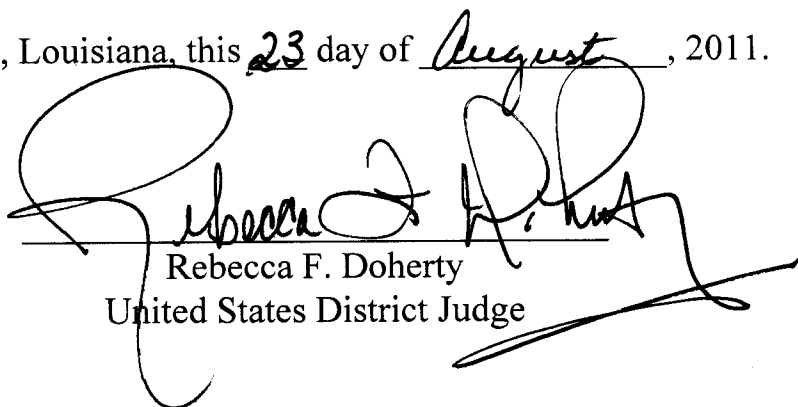 , Louisiana, this 23 day of August, 2011.
Rebecca F. Doherty
Rebecca F. Doherty
United States District Judge